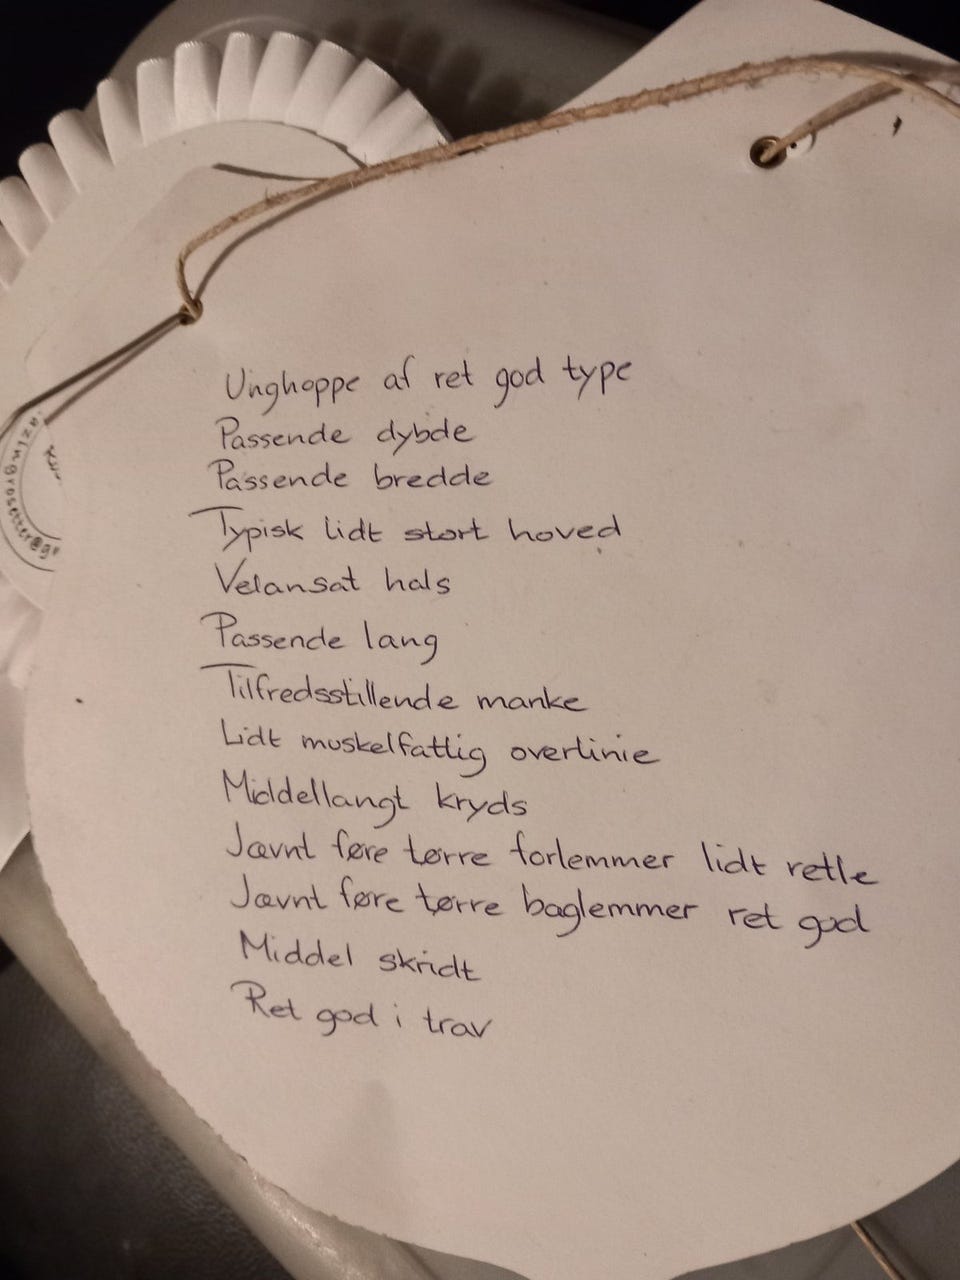 Unghoppe af ret god type
Passende dybde
Passende bredde
Typisk lidt stort hoved
Velansat hals
Passende lang
Tilfredsstillende manke
Lidt muskelfattig overlinie
Middellangt kryds
Jævnt føre tørre forlemmer lidt retle
Jævnt føre tørre baglemmer ret god
Middel skridt
Ret god i trav
azingrosetter@g